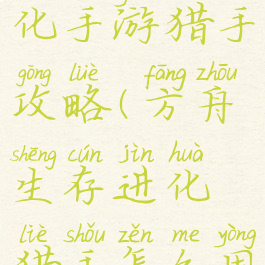 化手游猎手
gōng lüè fāng zhōu
攻略(方舟
shēng cún jìn huà
生存进化
liè shǒu zěn me yòng
猎手怎么用